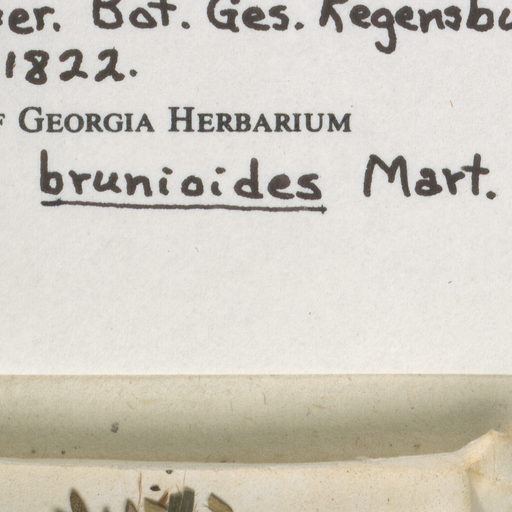 Bot. Ges. Regensbu
1822.
GEORGIA HERBARIUM
brunioides Mart.